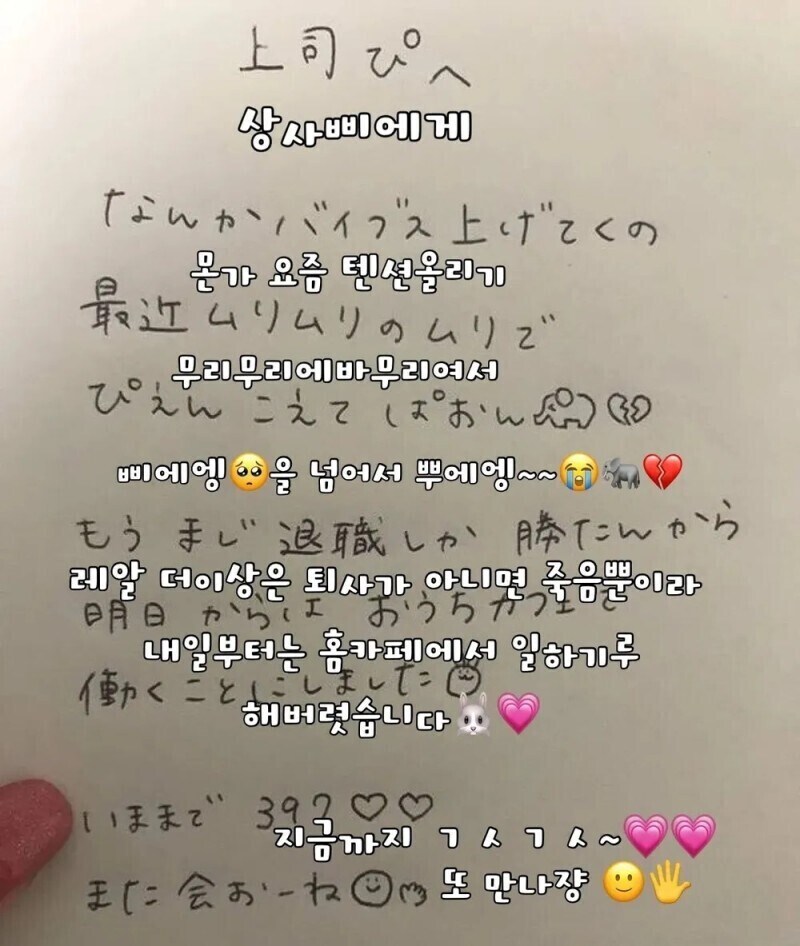 上司ぴへ
상사삐에게
なんかバイブス上げてくの
몬가 요즘 텐션올리기
最近ムリムリのムリで
무리무리에바무리여서
ぴえんこえてぱおん🐘💔
삐에엥🥺을 넘어서 뿌에엥~~😭🐘💔
もうまじ退職しか勝たんから
레알 더이상은 퇴사가 아니면 죽음뿐이라
明日からはおうちカフェで
내일부터는 홈카페에서 일하기루
働くことにしました
해버렸습니다🐰💗
いままで 39?♡♡
지금까지 ㄱㅅㄱㅅ~💗💗
また会おーね☺
또 만나쟝 🙂🖐